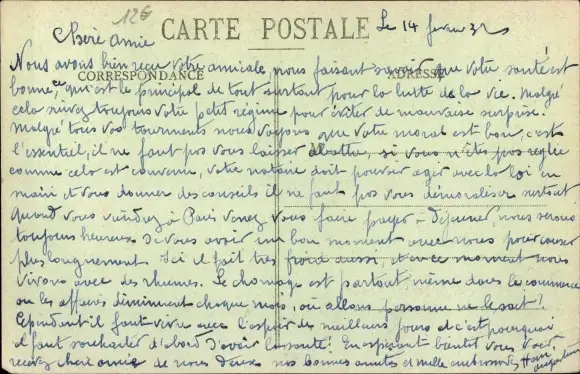 12€
CARTE POSTALE
Le 14 fevrier 32
Chère amie
CORRESPONDANCE
ADRESSE
Nous avons bien reçu votre amicale, nous faisant savoir que votre santé est
bonne ce qui est le principal de tout surtout pour la lutte de la vie. Malgré
cela suivez toujours votre petit régime pour éviter de mauvaise surprise.
Malgré tous vos tourments nous voyons que votre moral est bon, c'est
l'essentiel, il ne faut pas vous laisser abattre, si vous n'êtes pas reglée
comme cela est convenu, votre notaire doit pouvoir agir avec la loi en
main et vous donner des conseils il ne faut pas vous démoraliser surtout
Quand vous viendrez à Paris venez vous faire payer à déjeuner, nous serons
toujours heureux d'avoir un bon moment avec nous pour causer
plus longuement. Ici il fait très froid aussi, et en ce moment nous
vivons avec des rhumes. Le chomage est partout, même dans le commerce
ou les affaires diminuent chaque mois, où allons personne ne le sait!
Cependant il faut vivre avec l'espoir des meilleurs jours et c'est pourquoi
il faut souhaiter d'abord d'avoir la santé! En espérant bientôt vous voir,
recevez chère amie de nous deux nos bonnes amitiés et mille